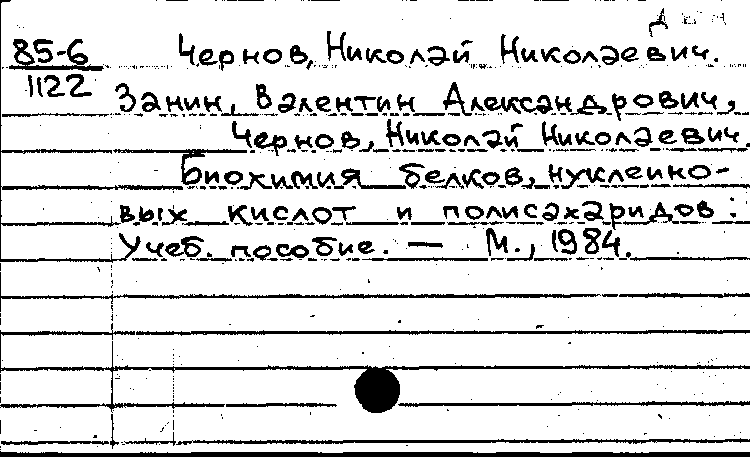 85-6
1122
Чернов, Николай Николаевич.
Занин, Валентин Александрович,
Чернов, Николай Николаевич.
Биохимия белков, нуклеино-
вых кислот и полисахаридов:
Учеб. пособие. — М., 1984.